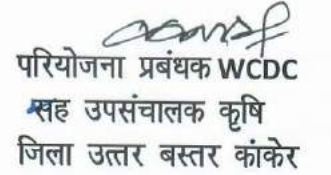 परियोजना प्रबंधक WCDC
सह उपसंचालक कृषि
जिला उत्तर बस्तर कांकेर